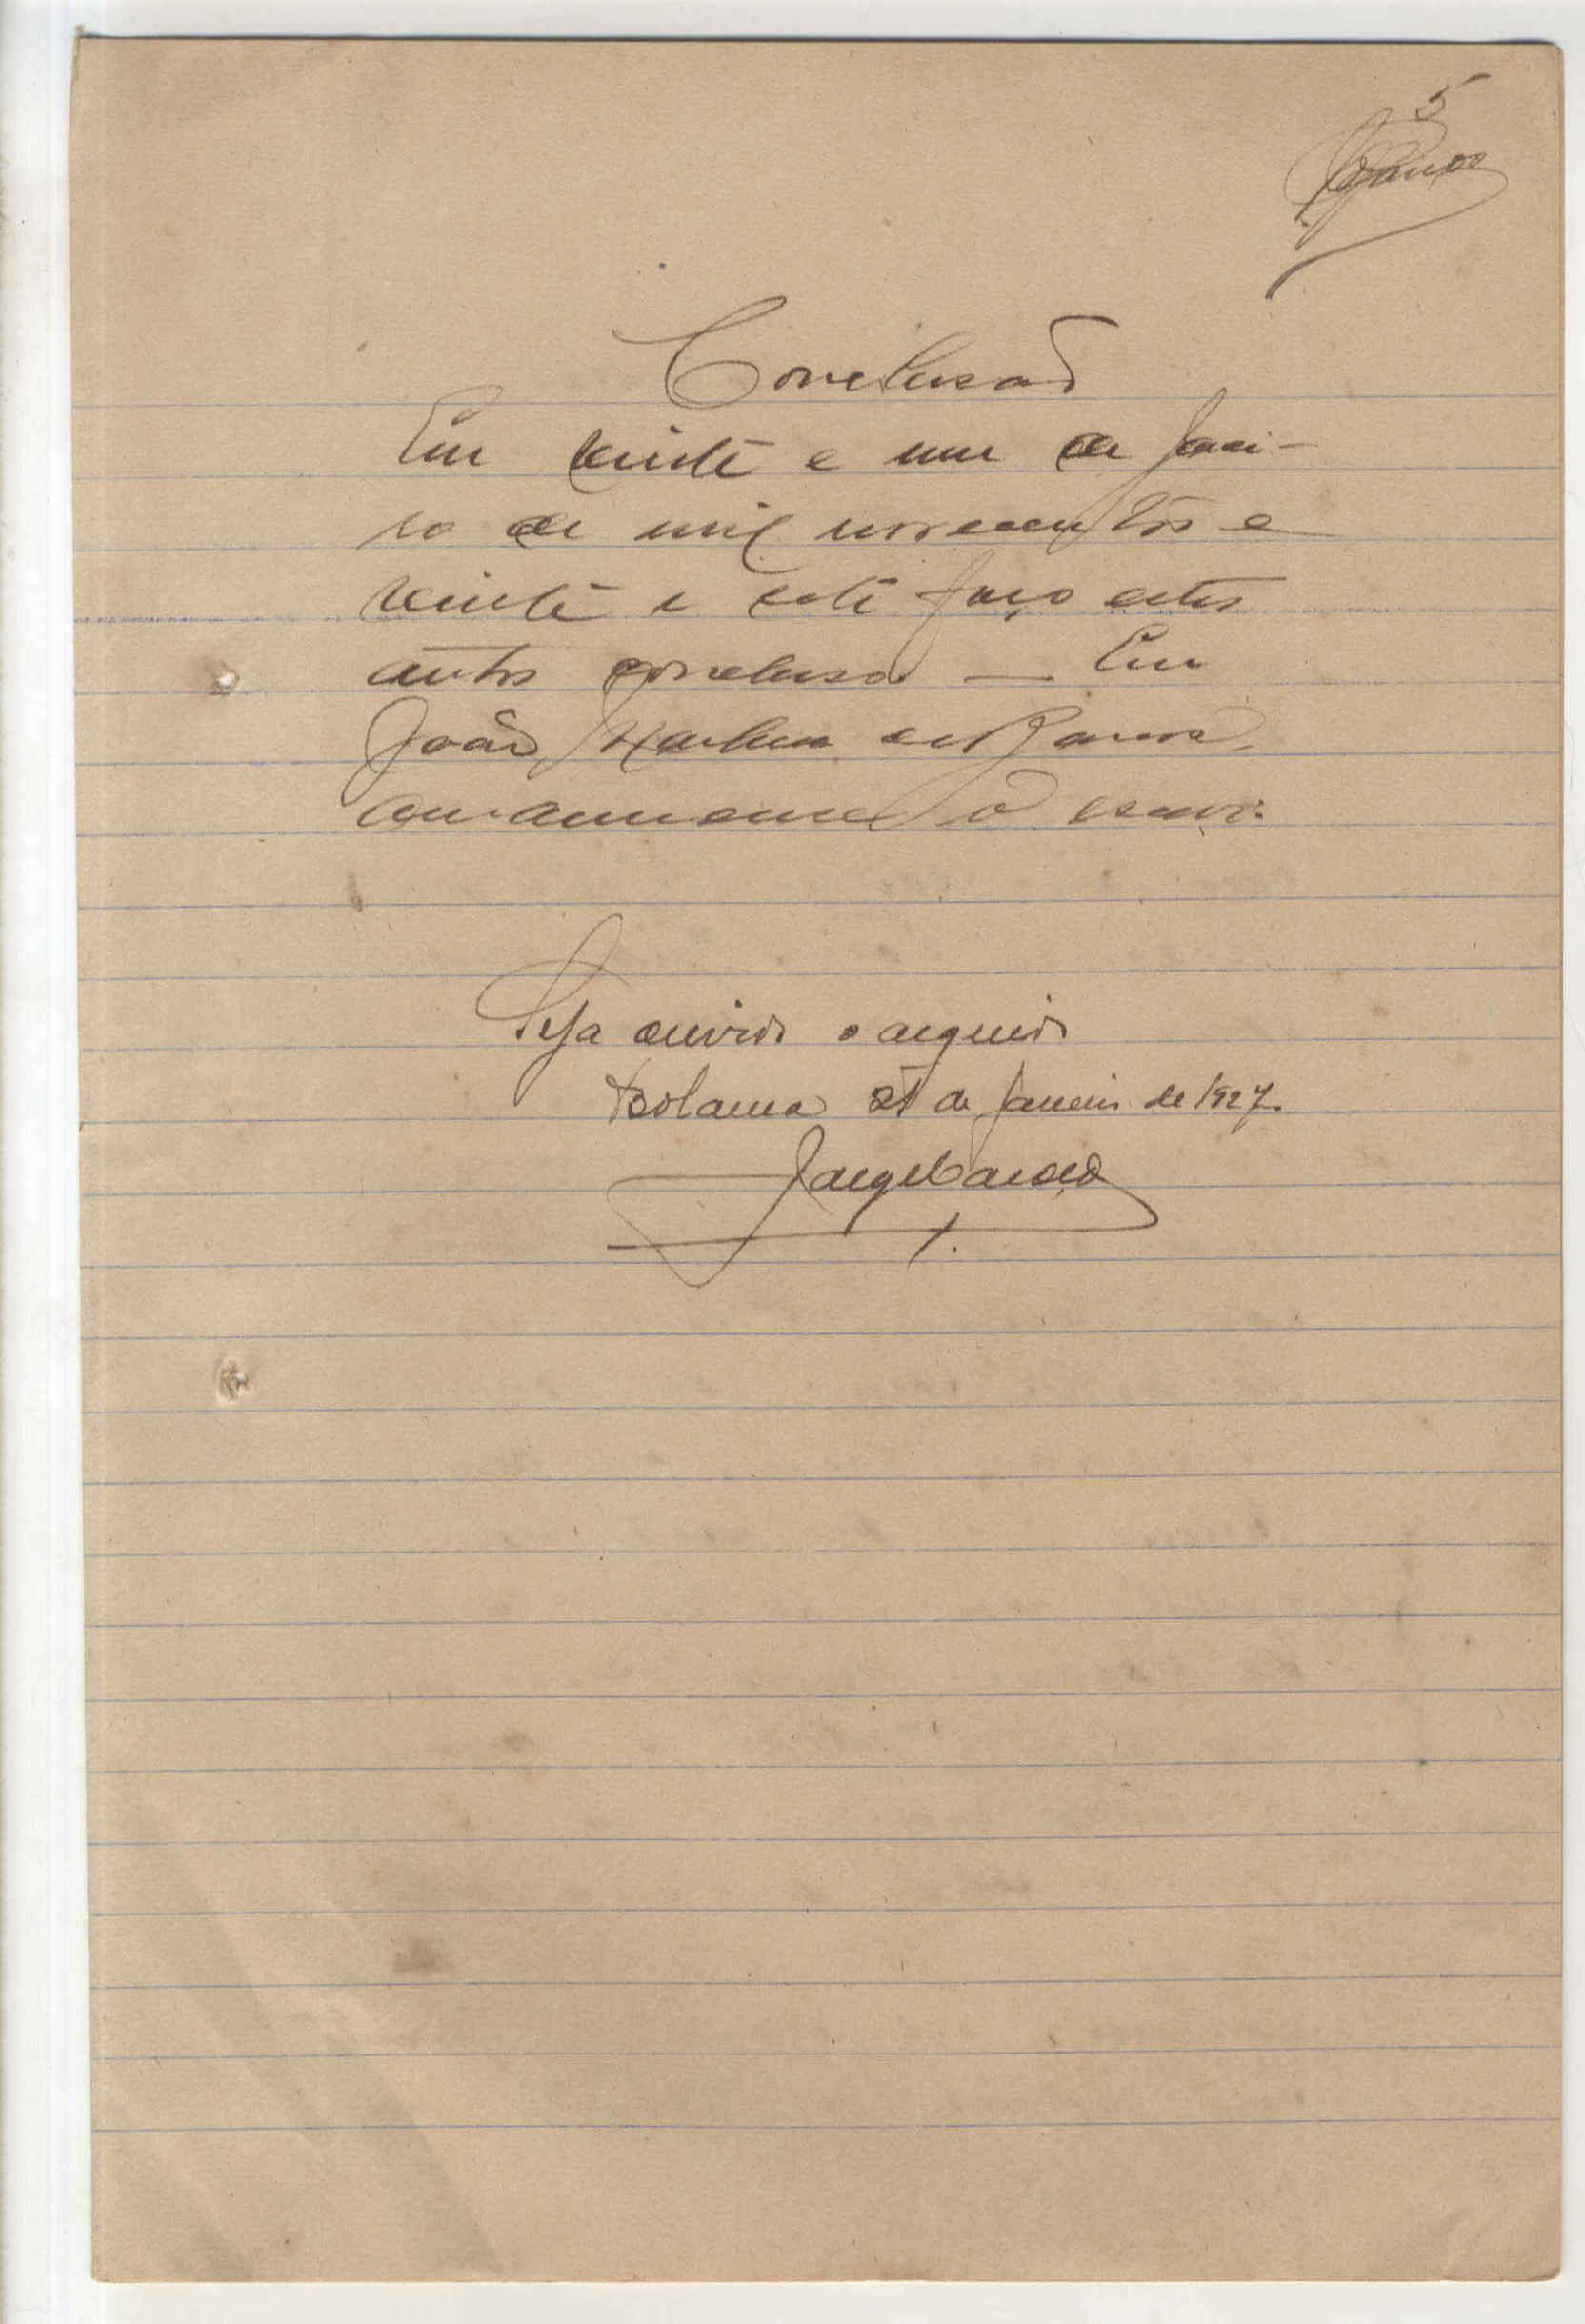 5
Conclusão
Em vinte e um de Janei-
ro de mil novecentos e
vinte e sete faço estes
autos conclusos — Eu
João de Barros
o escrevi.
Seja ouvido o arguido
Bolama 21 de Janeiro de 1927.